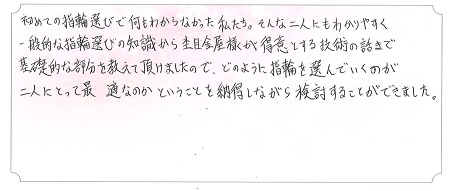 初めての指輪選びで何もわからなかった私たち。そんな二人にもわかりやすく
一般的な指輪選びの知識から杢目金屋様が得意とする技術の話まで
基礎的な部分を教えて頂けましたので、どのように指輪を選んでいくのが
二人にとって最適なのかということを納得しながら検討することができました。